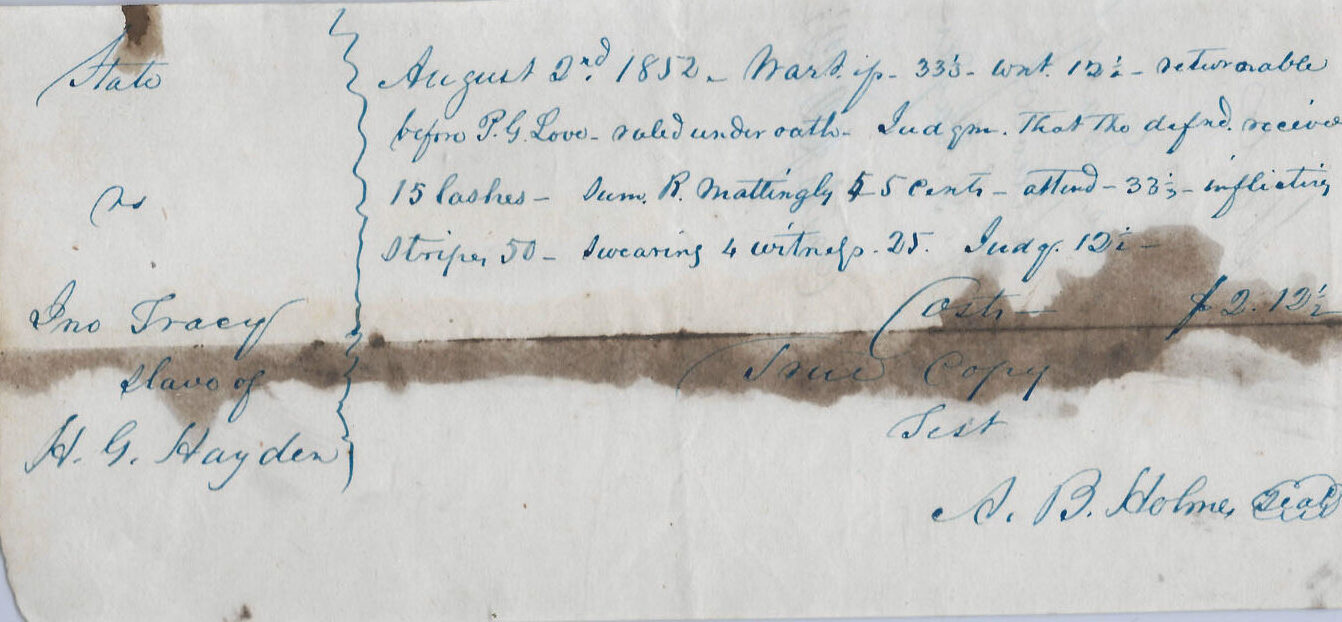 State
vs
Jno Tracy
slave of
H. G. Hayden
August 2nd. 1852 - Wart. ip - 33⅓ - wnt. 12½ - returnable
before P. G. Love - ruled under oath - Judgm. that the defnd. receive
15 lashes - sum. R. Mattingly 5 cents - attend - 33⅓ - inflicting
stripes 50 - swearing 4 witness. 25. Judg. 12½ -
Costs - $2.12½
True Copy
Test
A. B. Holmes Seal